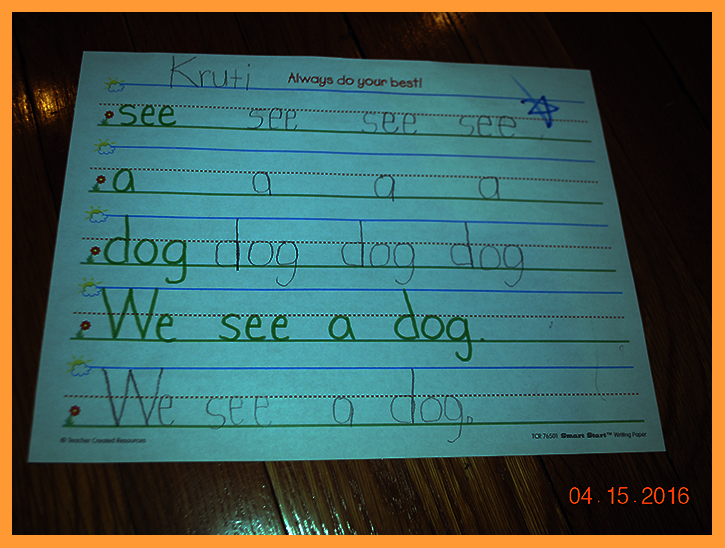 Kruti Always do your best!
see see see see
a a a a
dog dog dog dog
We see a dog.
We see a dog.
© Teacher Created Resources TCR 76501 Smart Start™ Writing Paper
04.15.2016